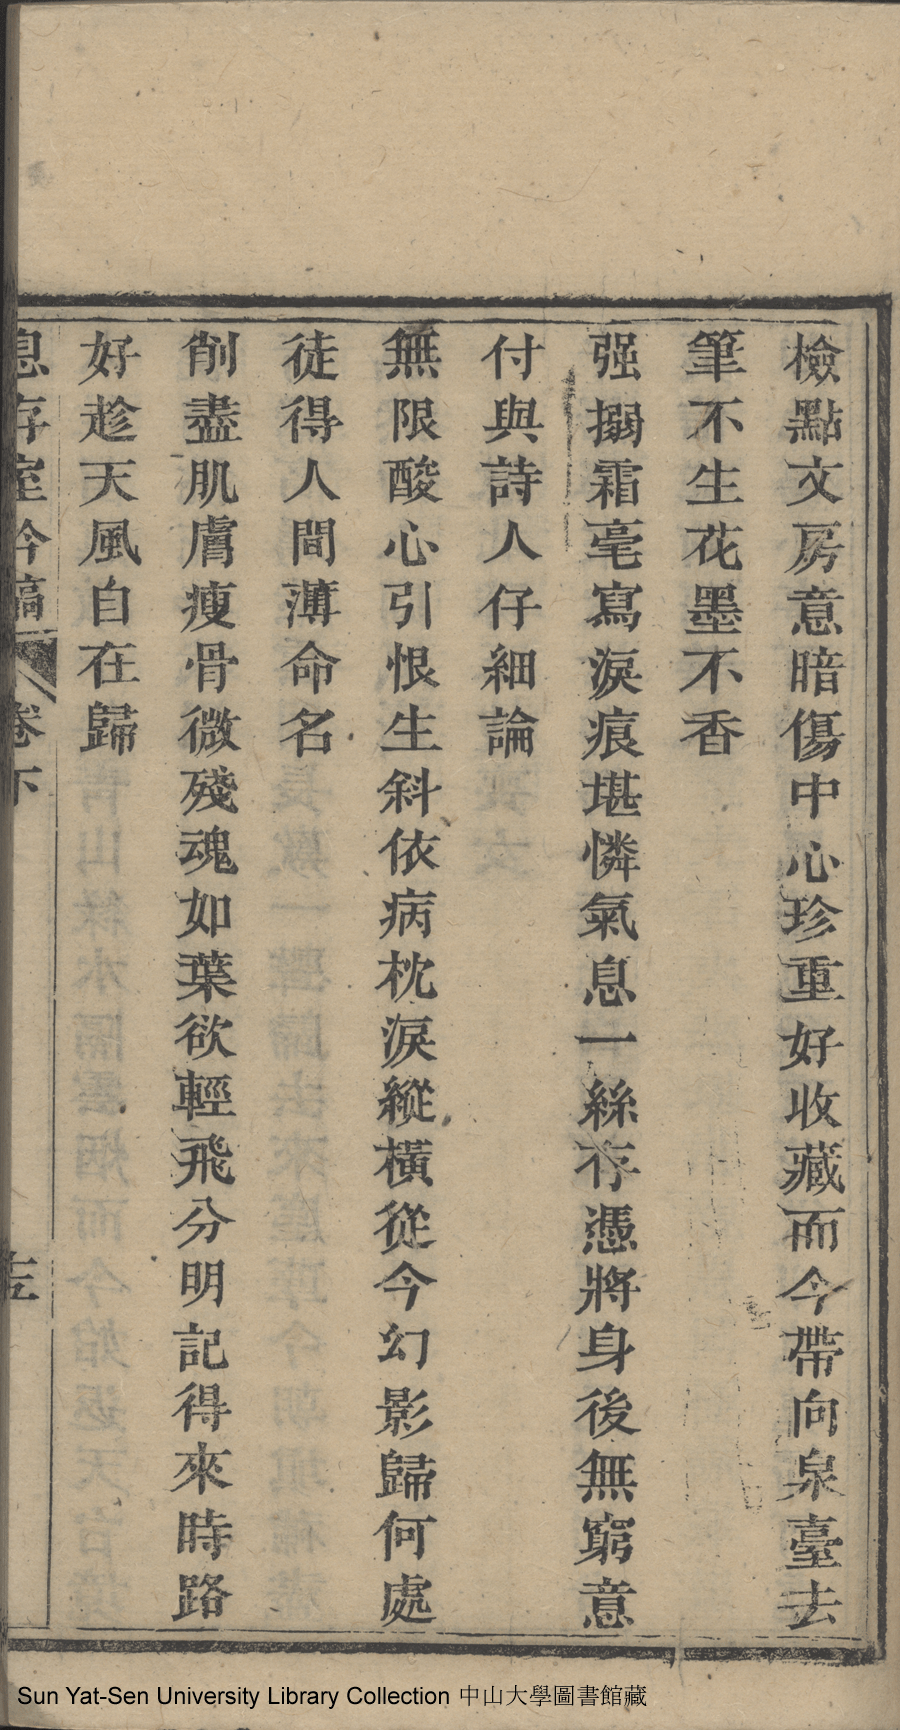 檢點文房意暗傷中心珍重好收藏而今帶向泉臺去
筆不生花墨不香
强搦霜毫寫淚痕堪憐氣息一絲存憑將身後無窮意
付與詩人仔細論
無限酸心引恨生斜依病枕淚縱橫從今幻影歸何處
徒得人間薄命名
削盡肌膚瘦骨微殘魂如葉欲輕飛分明記得來時路
好趁天風自在歸
息存室吟稿 卷下
Sun Yat-Sen University Library Collection 中山大學圖書館藏